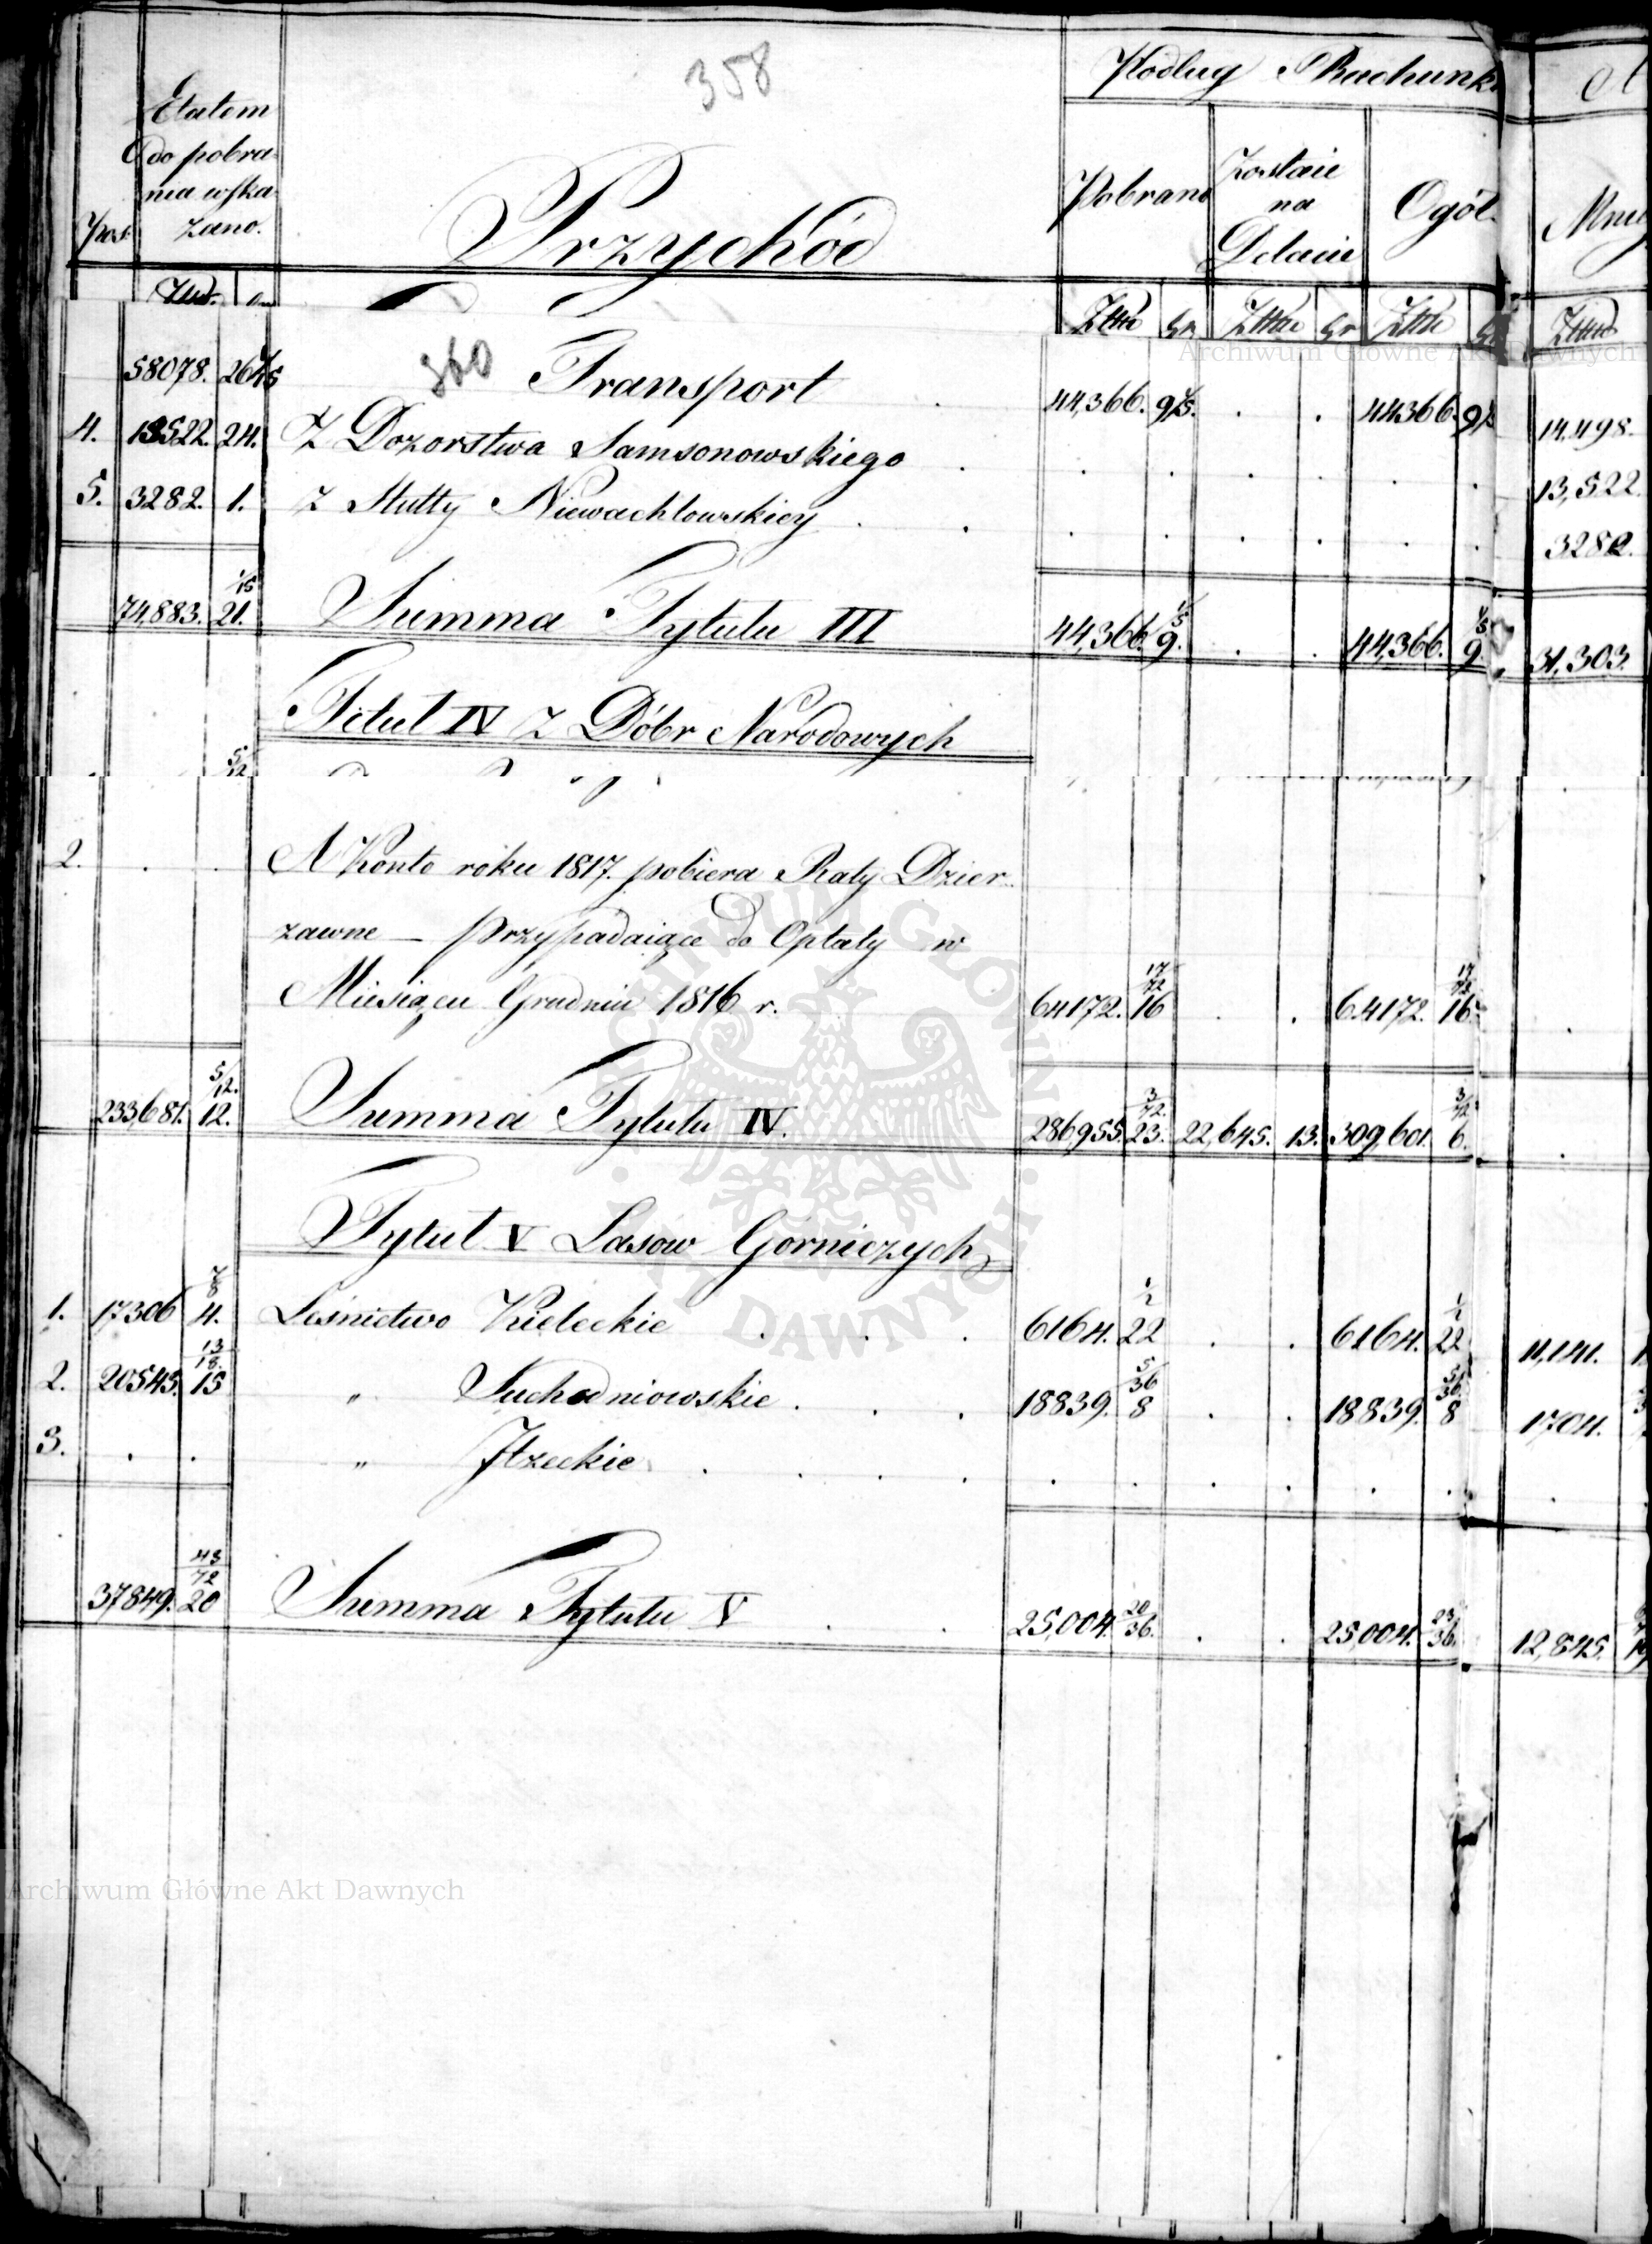 358
Podług Rachunk
Etatem
do pobra
nia wska
zano.
Pos.
Przychód
Pobrano
Zostaie
na
Delacie
Ogół
Mniey
Złtt Gr Złtt Gr Złtt
Archiwum Główne Akt Dawnych
360
58078. 26 1/15 Transport 44,366. 9 1/5. . . 44366. 9 14,498.
4. 13522. 24. Z Dozorstwa Samsonowskiego . . . . . . . 13,522.
5. 3282. 1. Z Hutty Niewachlowskiey . . . . . . . . 3282.
74,883. 21. 1/15 Summa Tytułu III 44,366. 9. 1/5 . . 44,366. 9. 1/5 31,303.
Titul IV Z Dóbr Narodowych
5/12
2. . . A Konto roku 1817. pobiera Raty Dzier
zawne — przypadaiące do Opłaty w
Miesiącu Grudniu 1816 r. 64172. 16 17/72 . . 64172. 16 17/72 .
233,681. 12. 5/12. Summa Tytułu IV. 286,955. 23. 3/72. 22,645. 13. 309,601. 6. 3/72 .
Tytuł V Lasow Górniczych
1. 17306 4. 7/8 Leśnictwo Kieleckie . . . 6164. 22 1/2 . . 6164. 22 1/2 11,141.
2. 20543. 15 13/18. " Suchedniowskie . . . 18839. 8 5/36 . . 18839. 8 5/36. 1704.
3. . . " Jłzeckie . . . . . . . . . . .
37849. 20 43/72 Summa Tytułu V . . 25,004. 20/36. . . 25,004. 23/36. 12,845.
Archiwum Główne Akt Dawnych
ARCHIWUM GŁÓWNE AKT DAWNYCH